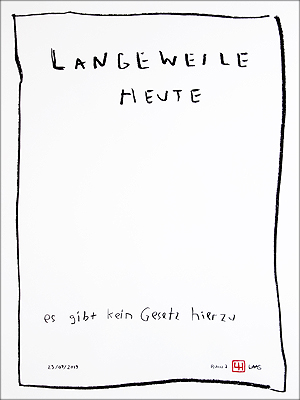 LANGEWEILE
HEUTE
es gibt kein Gesetz hierzu
23/07/2019